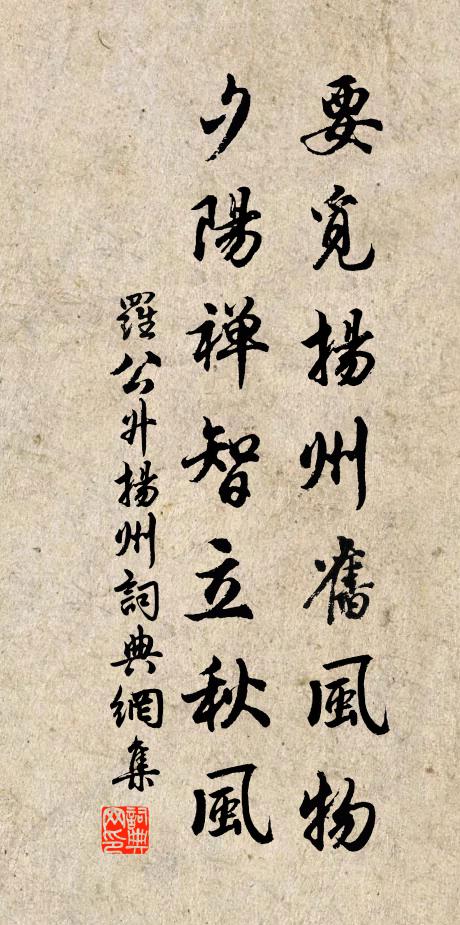 要覓揚州舊風物
夕陽禅智立秋風
羅公升揚州詞典網集
詞典网印